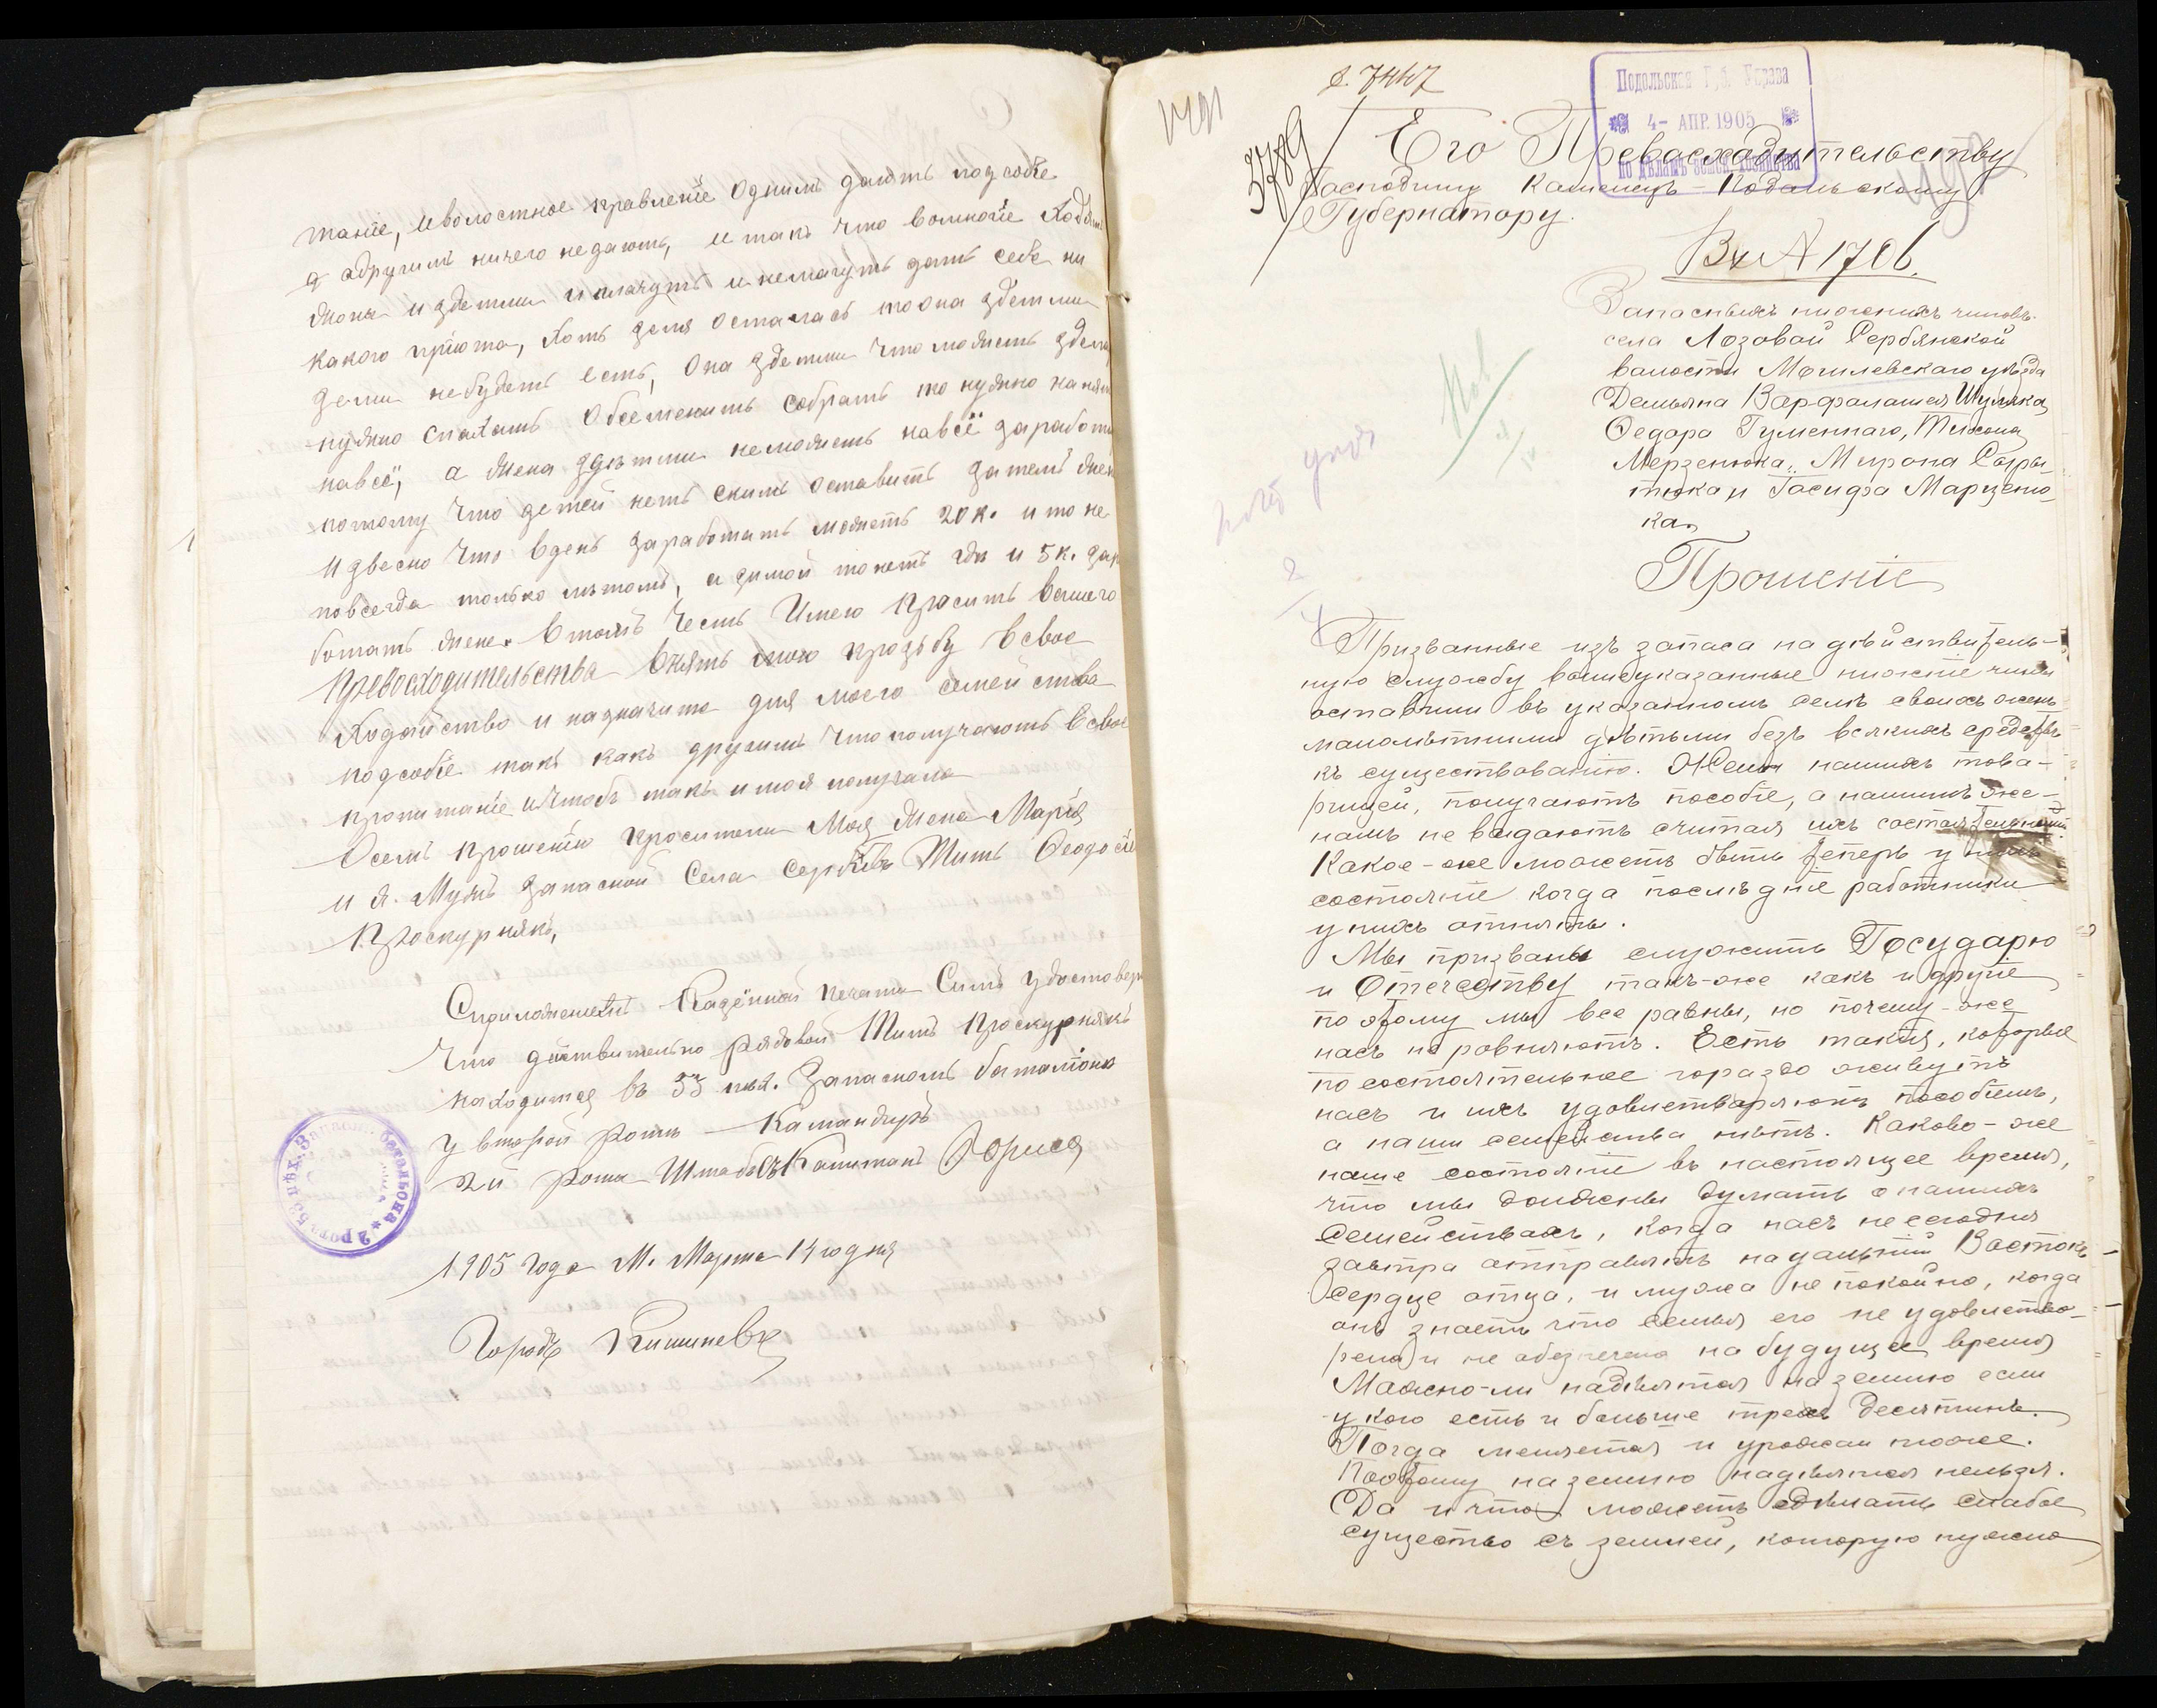 таніе, иволостное правленіе Однимъ даютъ подсобіе
а адругимъ ничего недаютъ, и такъ что вомногіе Ходятъ
жоны издетми и плачутъ и немагутъ дать себе ни
какого пріюта, Хоть земля осталась тоона здетми
земли небудетъ есть, Она здетми что можетъ зделать
нужно спахать Обсеменить собрать то нужно нанять
навсё, а жена здѣтми неможетъ навсё заработать
потому что детей нетъ скимъ оставить затемъ жене
Извесно что вдень заработать можетъ 20 к. и то не
повсегда только лѣтомъ, а зимой то нетъ где и 5 к. зара
ботать жене. Втомъ Честь Имею просить Вашего
Превосходительства Внять мою прозьбу Всвое
Ходайство и назначите для моего семейства
подсобіе такъ какъ другимъ что получаютъ Всвое
пропитаніе ичтобъ такъ и моя получала
Осемъ прошеніи просители Моя жена Марія
и я. Мужъ Запасной Села Сербовъ Титъ Феодосіевъ
Проскурнякъ,
Сприложеніемъ Казённой печати Симъ удостоверяю
Что действительно рядовой Титъ Проскурнякъ
находится въ 53 пѣх. Запасномъ баталіоне
у второй роты — Камандиръ
2й роты Штабсъ Капитанъ
1905 года М. Марта 14 го дня
Городъ Кишиневъ
1
Запасн. баталіона * 2 рота
д. 7447
3789
Подольская Губ. Управа
4 - АПР. 1905
по дѣламъ земск. хозяйства
Его Превасхадительству
Господину Каменецъ-Подольскому
Губернатору.
Вх № 1706.
Запасныхъ нижнихъ чиновъ
села Лозовой Сербянской
валости Могилевскаго уѣзда
Демьяна Варфаламея Шуляка,
Федара Гуменнаго, Тихона
Мерзенюка, Мирана Сары-
тюка и Іасифа Марцено-
ка,
Прошеніе
Призванные изъ запаса на дѣйствитель-
ную службу вышеуказанные нижніе чины
оставили въ указанномъ селѣ своихъ женъ
малолѣтними дѣтьми безъ всякихъ средствъ
къ существованію. Жены нашихъ това-
рищей, получаютъ пособіе, а нашимъ же-
намъ не выдаютъ считая ихъ состоятельными.
Какое-же можетъ быть теперь у нихъ
состояніе когда послѣдніе работники
у нихъ отняты.
Мы призваны служить Государю
и Отечеству такъ-же какъ и другіе
поэтому мы все равны, но почему-же
насъ не ровняютъ. Есть такія, которые
по состоятельнее гораздо живутъ
насъ и ихъ удовлетваряютъ пособіемъ,
а наши семейства нѣтъ. Каково-же
наше состояніе въ настоящее время,
что мы должны думать о нашихъ
семействахъ, когда насъ не сегодня
завтра отправятъ на дальній Востокъ
Сердце отца, и мужа не покойно, когда
онъ знаетъ что семья его не удовлетво-
рена и не абезпечена на будущее время
Можно-ли надѣятся на землю если
у кого есть и больше трехъ десятинъ.
Погда меняется и урожаи тоже.
Поэтому на землю надѣятся нельзя.
Да и что можетъ сдѣлать слабое
существо съ землей, которую нужно